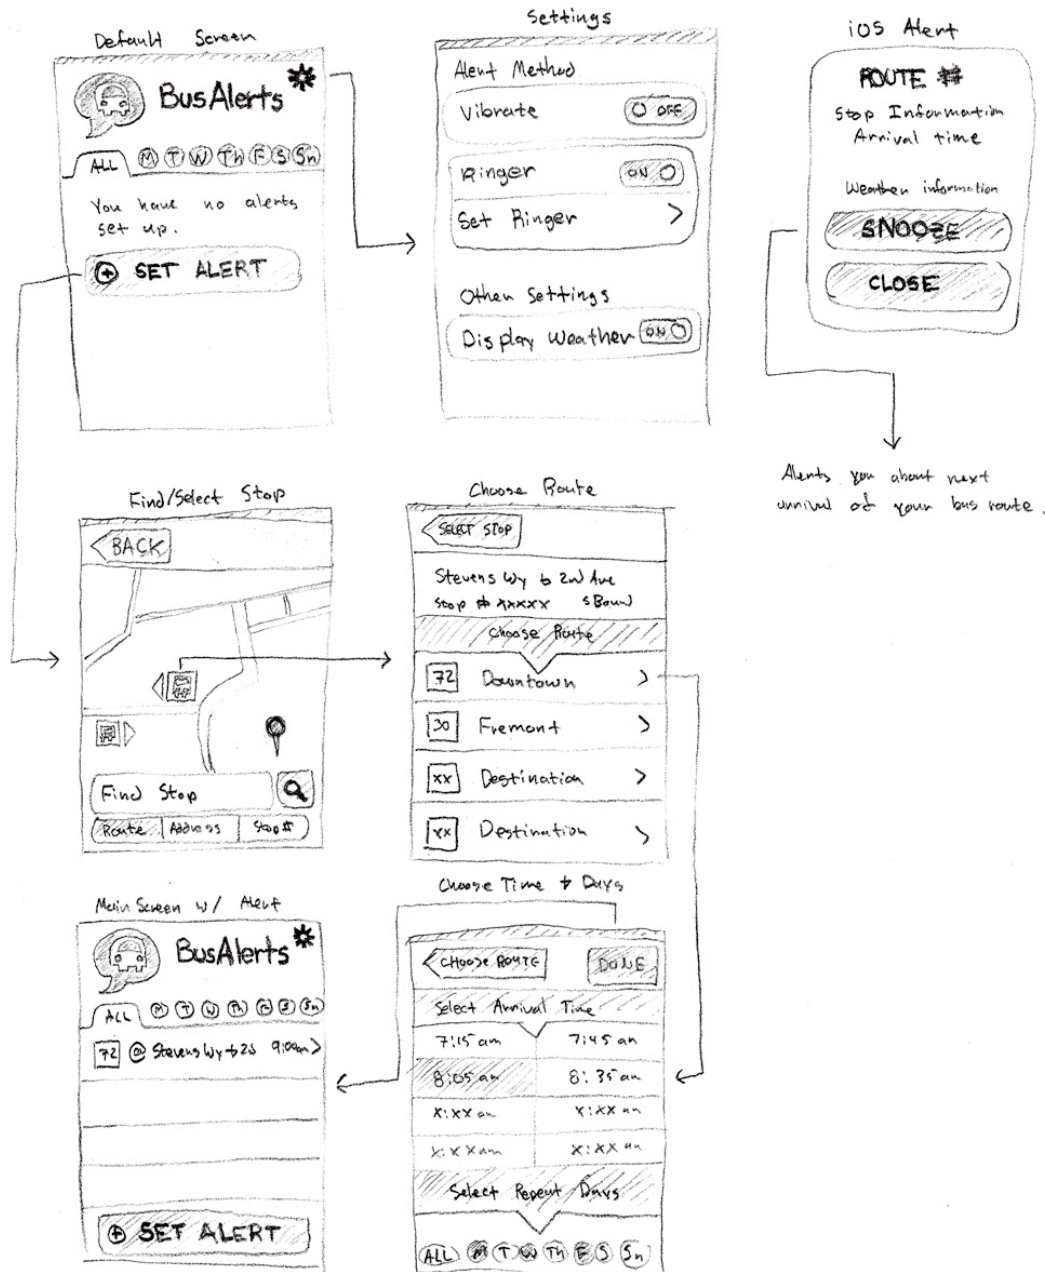 Default Screen
BusAlerts
ALL M T W Th F S Sn
You have no alerts
set up.
+ SET ALERT
Settings
Alert Method
Vibrate OFF
Ringer ON
Set Ringer >
Other Settings
Display Weather ON
iOS Alert
ROUTE #
Stop Information
Arrival time
Weather information
SNOOZE
CLOSE
Alerts you about next
arrival of your bus route.
Find/Select Stop
BACK
Find Stop
Route Address Stop#
Choose Route
SELECT STOP
Stevens Wy & 2nd Ave
Stop # xxxxx SBound
Choose Route
72 Downtown >
30 Fremont >
xx Destination >
xx Destination >
Main Screen w/ Alert
BusAlerts
ALL M T W Th F S Sn
72 @ Stevens Wy & 2nd 9:00am >
+ SET ALERT
Choose Time & Days
CHOOSE ROUTE DONE
Select Arrival Time
7:15 am 7:45 am
8:05 am 8:35 am
x:xx am x:xx am
x:xx am x:xx am
Select Repeat Days
ALL M T W Th F S Sn